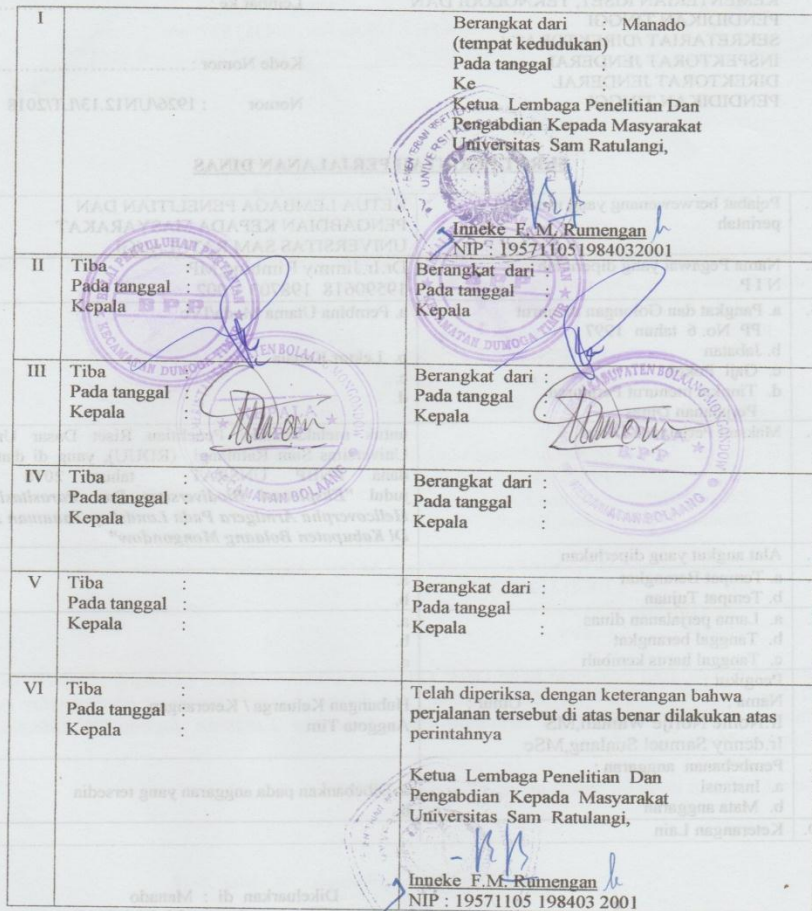 I
Berangkat dari : Manado
(tempat kedudukan)
Pada tanggal :
Ke :
Ketua Lembaga Penelitian Dan
Pengabdian Kepada Masyarakat
Universitas Sam Ratulangi,
Inneke F. M. Rumengan
NIP : 195711051984032001
II
Tiba :
Pada tanggal :
Kepala :
BALAI PENYULUHAN PERTANIAN
BPP
KECAMATAN DUMOGA TIMUR
Berangkat dari :
Pada tanggal :
Kepala :
BPP
KECAMATAN DUMOGA TIMUR
III
Tiba :
Pada tanggal :
Kepala :
KECAMATAN BOLAANG
Berangkat dari :
Pada tanggal :
Kepala :
KABUPATEN BOLAANG MONGONDOW
BPP
KECAMATAN BOLAANG
IV
Tiba :
Pada tanggal :
Kepala :
Berangkat dari :
Pada tanggal :
Kepala :
V
Tiba :
Pada tanggal :
Kepala :
Berangkat dari :
Pada tanggal :
Kepala :
VI
Tiba :
Pada tanggal :
Kepala :
Telah diperiksa, dengan keterangan bahwa
perjalanan tersebut di atas benar dilakukan atas
perintahnya
Ketua Lembaga Penelitian Dan
Pengabdian Kepada Masyarakat
Universitas Sam Ratulangi,
Inneke F.M. Rumengan
NIP : 19571105 198403 2001